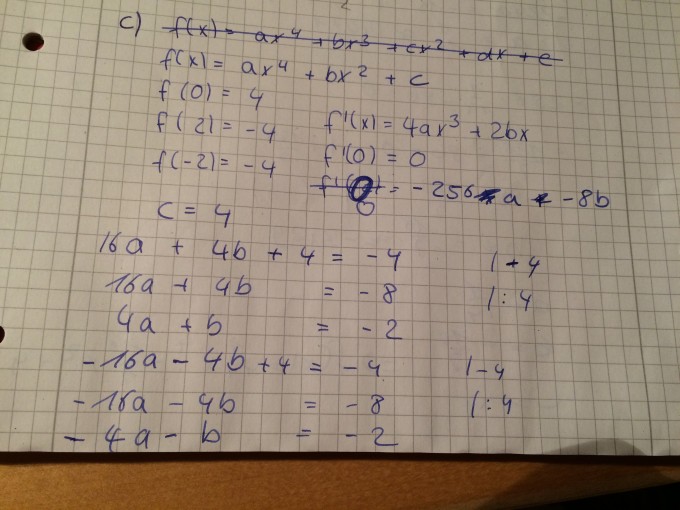 c) f(x) = ax⁴ + bx³ + cx² + dx + e
f(x) = ax⁴ + bx² + c
f(0) = 4
f(2) = -4 f'(x) = 4ax³ + 2bx
f(-2) = -4 f'(0) = 0
= -256 a -8b
c = 4
16a + 4b + 4 = -4 | -4
16a + 4b = -8 | : 4
4a + b = -2
-16a - 4b + 4 = -4 | -4
-16a - 4b = -8 | : 4
-4a - b = -2